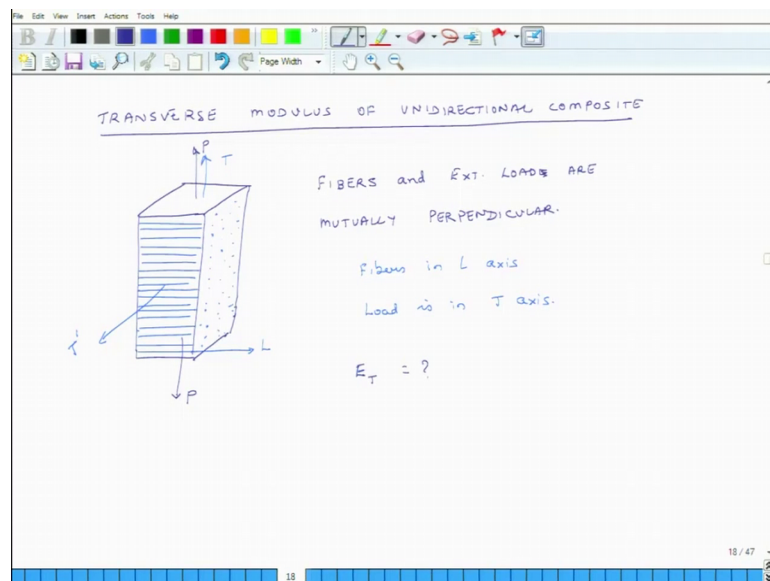 File Edit View Insert Actions Tools Help
B I
Page Width
TRANSVERSE MODULUS OF UNIDIRECTIONAL COMPOSITE
P
T
FIBERS and EXT. LOADS ARE
MUTUALLY PERPENDICULAR.
Fibers in L axis
Load is in T axis.
T'
L
E_T = ?
P
18 / 47
18